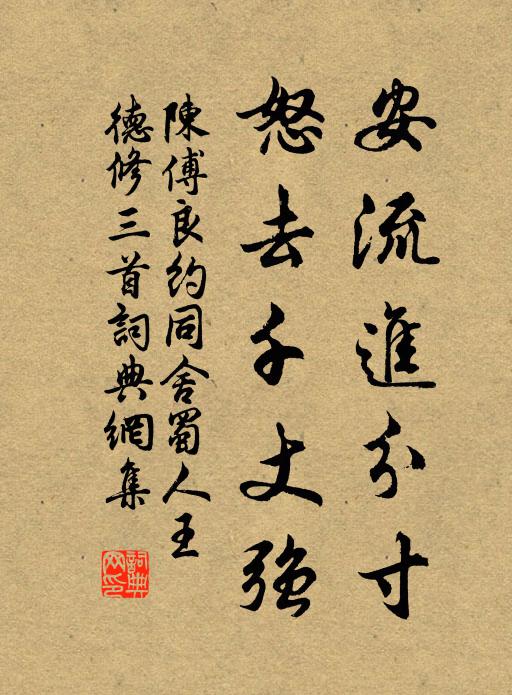 安流進分寸
怒去千丈強
陳傅良約同舍蜀人王
德修三首詞典網集
詞典網印